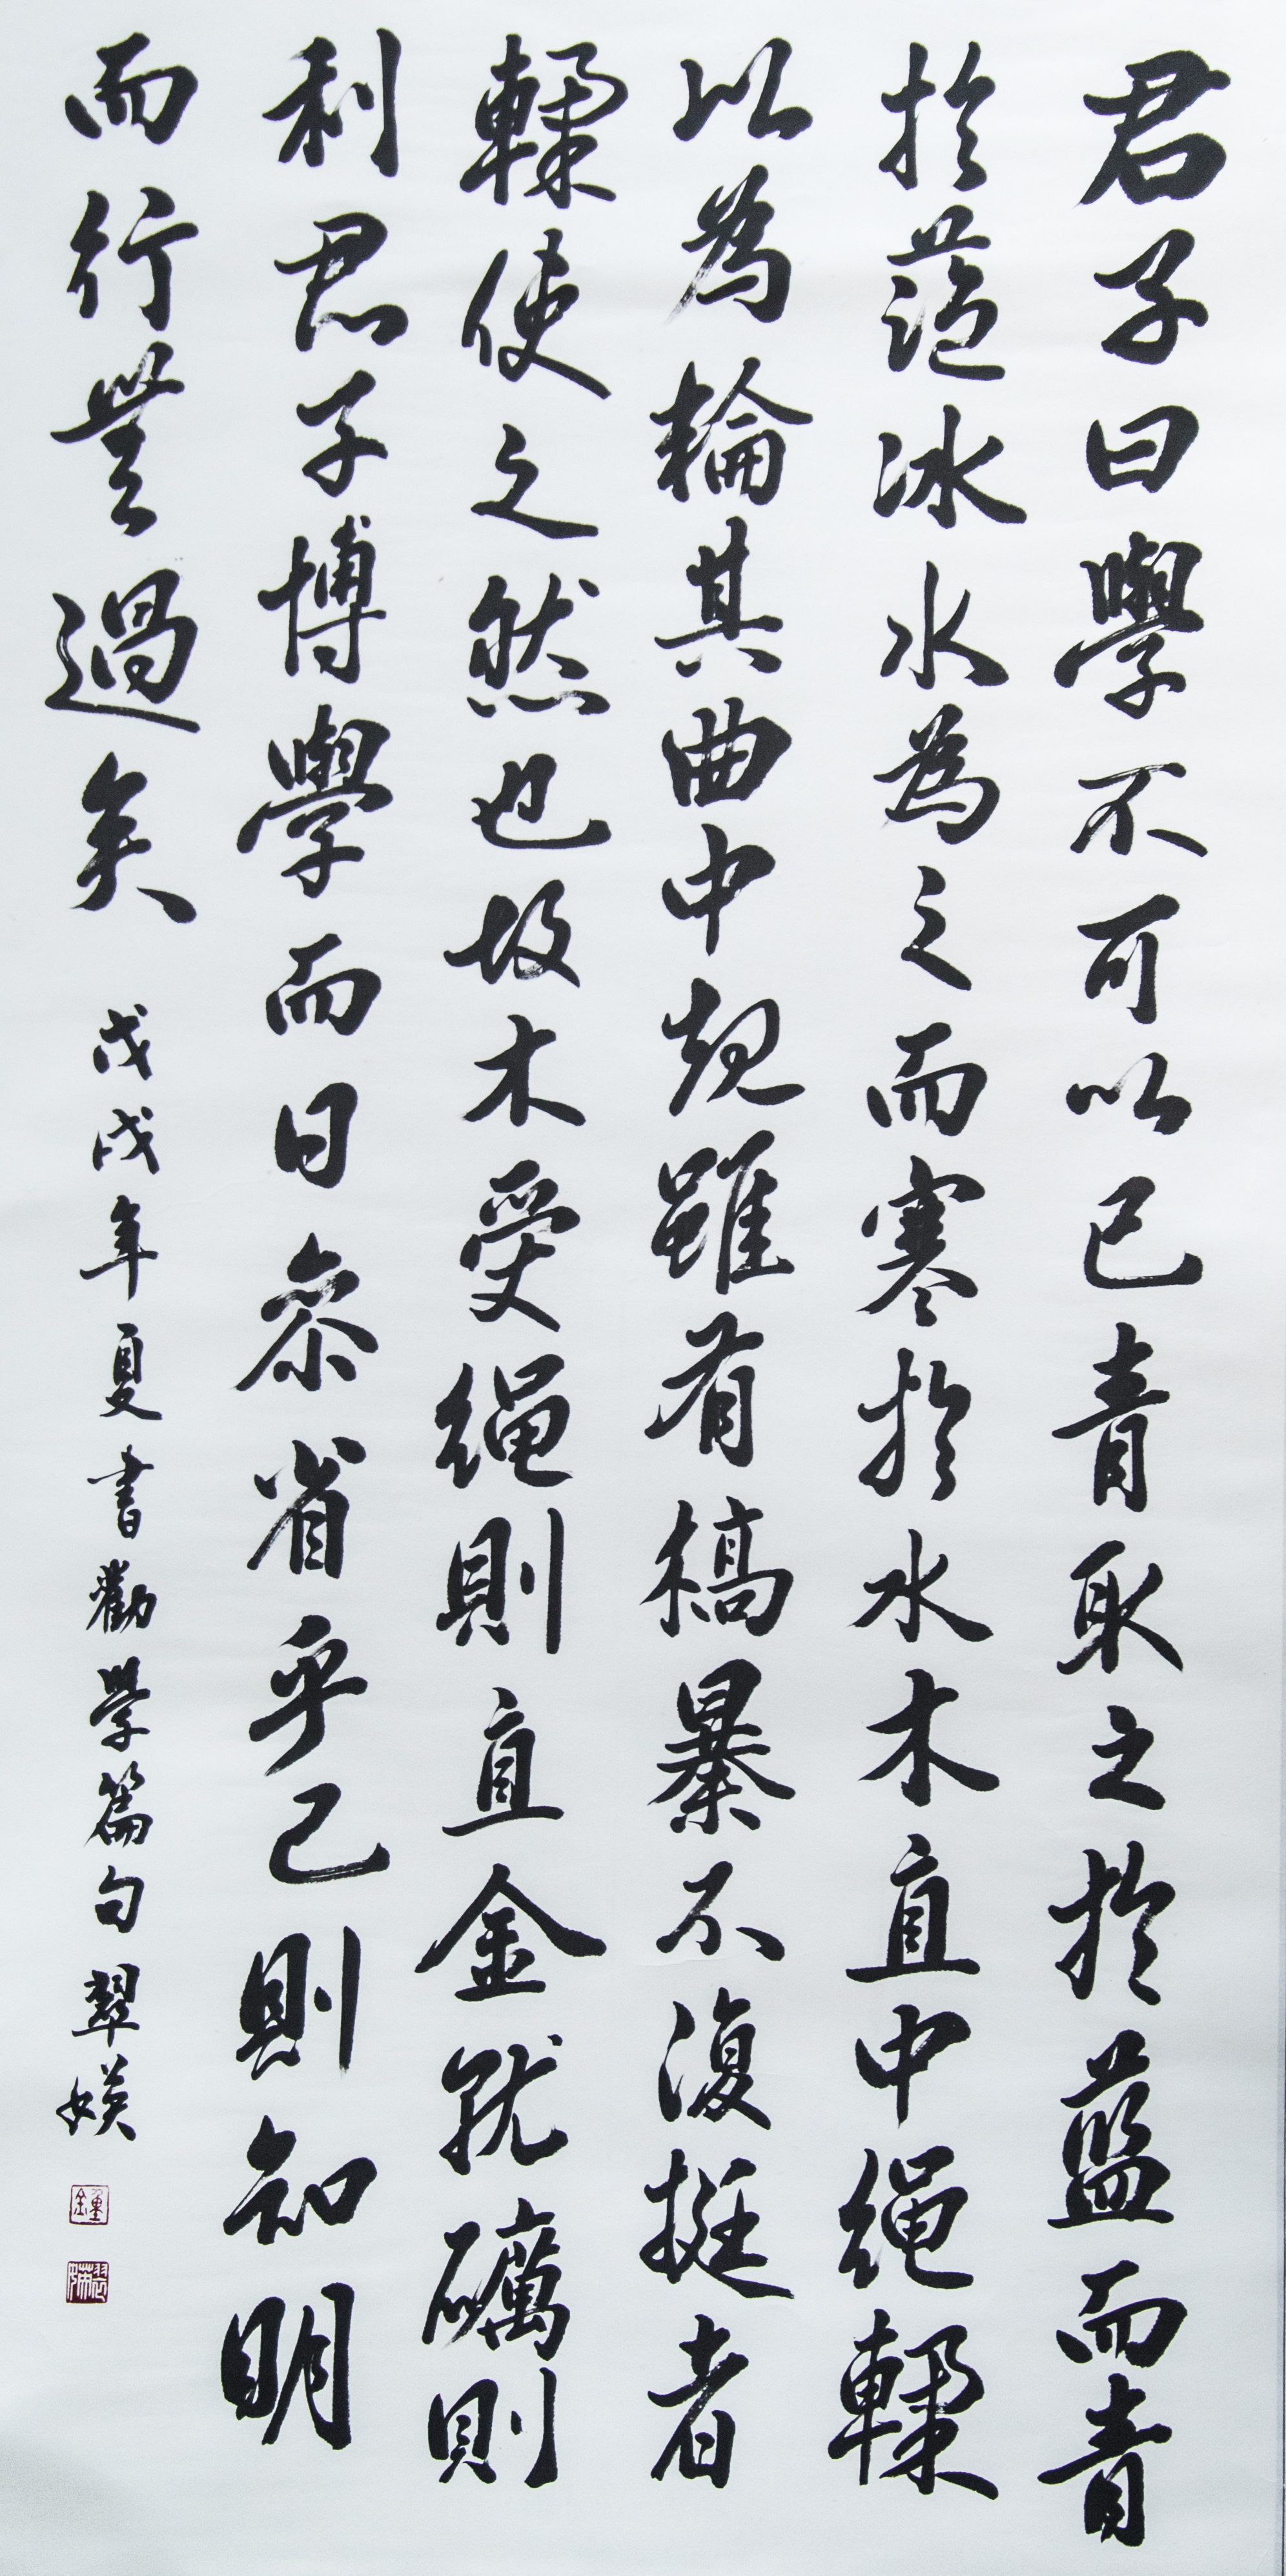 君子曰學不可以已青取之於藍而青
於藍冰水為之而寒於水木直中繩輮
以為輪其曲中規雖有槁暴不復挺者
輮使之然也故木受繩則直金就礪則
利君子博學而日參省乎己則知明
而行無過矣
戊戌年夏書勸學篇句翠媖